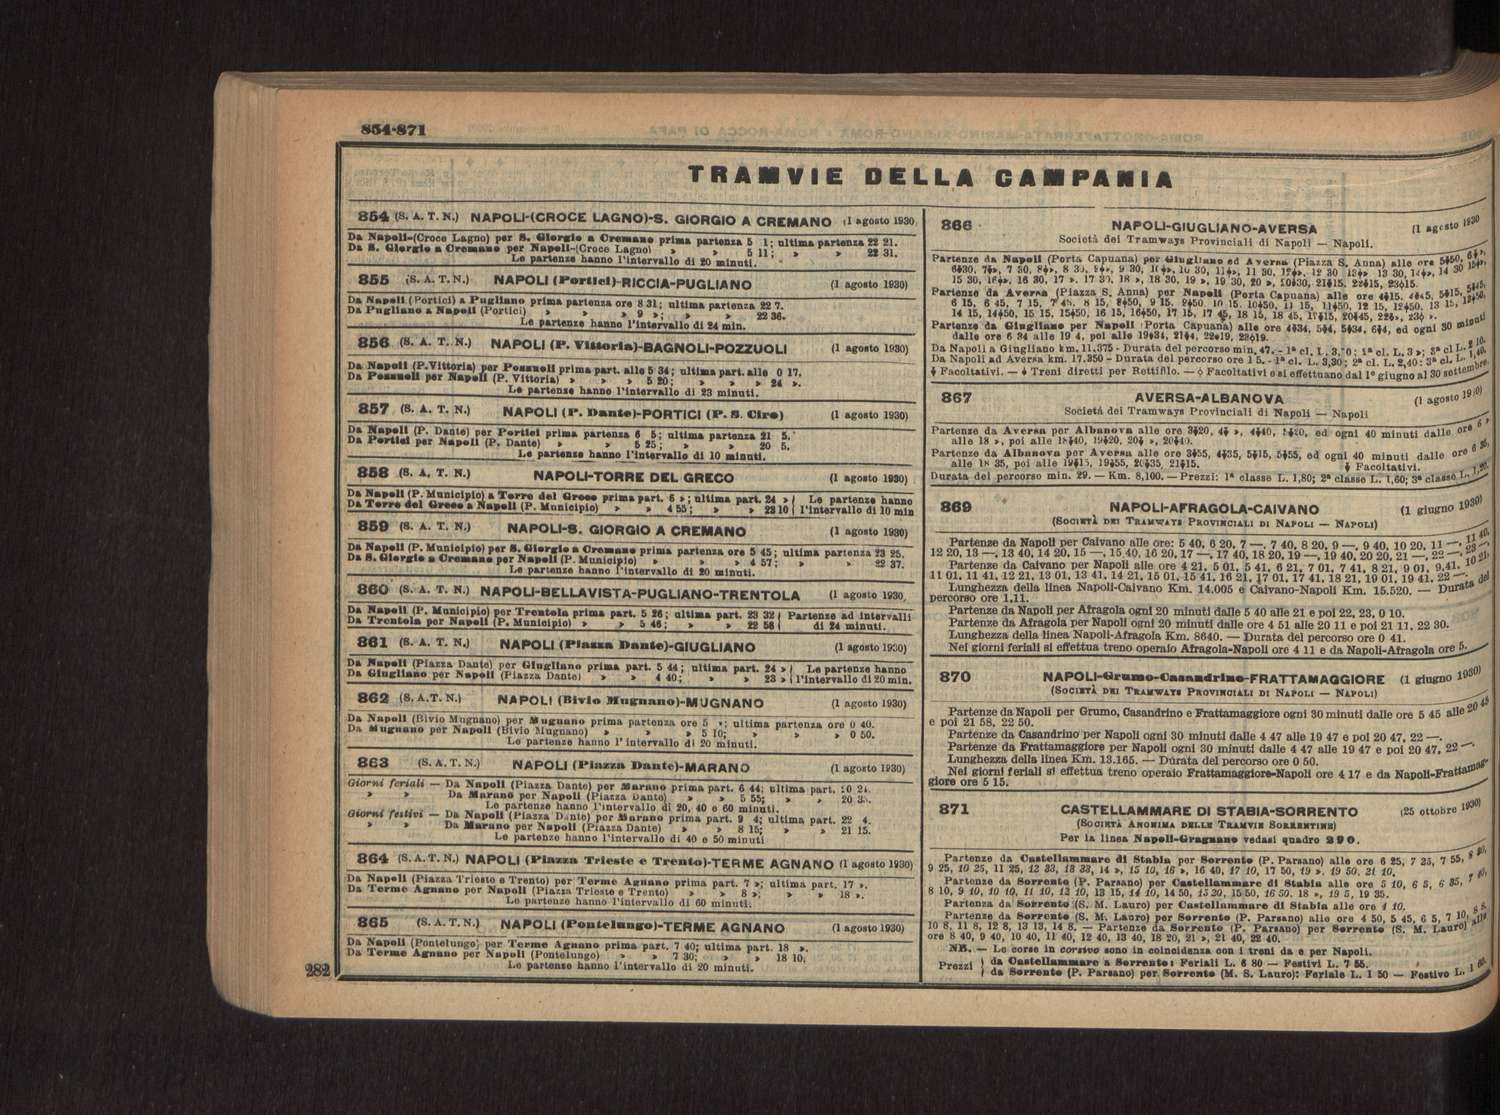 854-871
TRAMVIE DELLA CAMPANIA
854 (S. A. T. N.) NAPOLI-(CROCE LAGNO)-S. GIORGIO A CREMANO (1 agosto 1930
Da Napoli-(Croce Lagno) per S. Giorgio a Cremano prima partenza 5 1; ultima partenza 22 21.
Da S. Giorgio a Cremano per Napoli-(Croce Lagno) » » 5 11; » » 22 31.
Le partenze hanno l'intervallo di 20 minuti.
855 (S. A. T. N.) NAPOLI (Portici)-RICCIA-PUGLIANO (1 agosto 1930)
Da Napoli (Portici) a Pugliano prima partenza ore 8 31; ultima partenza 22 7.
Da Pugliano a Napoli (Portici) » » » 9 »; » » 22 36.
Le partenze hanno l'intervallo di 24 min.
856 (S. A. T. N.) NAPOLI (P. Vittoria)-BAGNOLI-POZZUOLI (1 agosto 1930)
Da Napoli (P.Vittoria) per Pozzuoli prima part. alle 5 34; ultima part. alle 0 17.
Da Pozzuoli per Napoli (P. Vittoria) » » » 5 20; » » » 24 ».
Le partenze hanno l'intervallo di 23 minuti.
857 (S. A. T. N.) NAPOLI (P. Dante)-PORTICI (P. S. Ciro) (1 agosto 1930)
Da Napoli (P. Dante) per Portici prima partenza 6 5; ultima partenza 21 5.
Da Portici per Napoli (P. Dante) » » 5 25; » » 20 5.
Le partenze hanno l'intervallo di 10 minuti.
858 (S. A. T. N.) NAPOLI-TORRE DEL GRECO (1 agosto 1930)
Da Napoli (P. Municipio) a Torre del Greco prima part. 6 »; ultima part. 24 » ( Le partenze hanno
Da Torre del Greco a Napoli (P. Municipio) » » 4 55; » » 23 10 ( l'intervallo di 10 min
859 (S. A. T. N.) NAPOLI-S. GIORGIO A CREMANO (1 agosto 1930)
Da Napoli (P. Municipio) per S. Giorgio a Cremano prima partenza ore 5 45; ultima partenza 23 25.
Da S. Giorgio a Cremano per Napoli (P. Municipio) » » » 4 57; » » 22 37.
Le partenze hanno l'intervallo di 20 minuti.
860 (S. A. T. N.) NAPOLI-BELLAVISTA-PUGLIANO-TRENTOLA (1 agosto 1930
Da Napoli (P. Municipio) per Trentola prima part. 5 26; ultima part. 23 32 ( Partenze ad intervalli
Da Trentola per Napoli (P. Municipio) » » 5 46; » » 22 58 ( di 24 minuti.
861 (S. A. T. N.) NAPOLI (Piazza Dante)-GIUGLIANO (1 agosto 1930)
Da Napoli (Piazza Dante) per Giugliano prima part. 5 44; ultima part. 24 » ( Le partenze hanno
Da Giugliano per Napoli (Piazza Dante) » » 4 40; » » 23 » ( l'intervallo di 20 min.
862 (S.A.T.N.) NAPOLI (Bivio Mugnano)-MUGNANO (1 agosto 1930)
Da Napoli (Bivio Mugnano) per Mugnano prima partenza ore 5 »; ultima partenza ore 0 40.
Da Mugnano per Napoli (Bivio Mugnano) » » » 5 10; » » » 0 50.
Le partenze hanno l'intervallo di 20 minuti.
863 (S. A. T. N.) NAPOLI (Piazza Dante)-MARANO (1 agosto 1930)
Giorni feriali — Da Napoli (Piazza Dante) per Marano prima part. 6 44; ultima part.
» » Da Marano per Napoli (Piazza Dante) » » 5 55; » »
Le partenze hanno l'intervallo di 20, 40 e 60 minuti.
Giorni festivi — Da Napoli (Piazza Dante) per Marano prima part. 9 4; ultima part. 22 4.
» » Da Marano per Napoli (Piazza Dante) » » 8 15; » » 21 15.
Le partenze hanno l'intervallo di 40 e 50 minuti
864 (S. A. T. N.) NAPOLI (Piazza Trieste e Trento)-TERME AGNANO (1 agosto 1930
Da Napoli (Piazza Trieste e Trento) per Terme Agnano prima part. 7 »; ultima part. 17 ».
Da Terme Agnano per Napoli (Piazza Trieste e Trento) » » 8 »; » » 18 ».
Le partenze hanno l'intervallo di 60 minuti.
865 (S. A. T. N.) NAPOLI (Pontelungo)-TERME AGNANO (1 agosto 1930)
Da Napoli (Pontelungo) per Terme Agnano prima part. 7 40; ultima part. 18 ».
Da Terme Agnano per Napoli (Pontelungo) » » 7 30; » » 18 10.
Le partenze hanno l'intervallo di 20 minuti.
282
866 NAPOLI-GIUGLIANO-AVERSA (1 agosto 1930
Società dei Tramways Provinciali di Napoli — Napoli.
Partenze da Napoli (Porta Capuana) per Giugliano ed Aversa (Piazza S. Anna) alle ore
Partenze da Aversa (Piazza S. Anna) per Napoli (Porta Capuana) alle ore
Partenze da Giugliano per Napoli (Porta Capuana) alle ore 4⸸34, 5⸸4, 5⸸34, 6⸸4, ed ogni 30 minuti
dalle ore 6 34 alle 19 4, poi alle
Da Napoli a Giugliano km. 11.375 - Durata del percorso min. 47. - 1ª cl. L.
Da Napoli ad Aversa km. 17.350 - Durata del percorso ore 1 5. - 1ª cl. L. 3,30; 2ª cl. L. 2,40; 3ª cl. L. 1,40.
Facoltativi. — Treni diretti per Rettifilo. — Facoltativi e si effettuano dal 1º giugno al 30 settembre.
867 AVERSA-ALBANOVA (1 agosto 1930)
Società dei Tramways Provinciali di Napoli — Napoli
Partenze da Aversa per Albanova alle ore 3⸸20, 4⸸ », 4⸸40, 5⸸20, ed ogni 40 minuti dalle ore 6 »
alle 18 », poi alle 18⸸40, 19⸸20, 20⸸ », 20⸸40.
Partenze da Albanova per Aversa alle ore 3⸸55, 4⸸35, 5⸸15, 5⸸55, ed ogni 40 minuti dalle ore 6 35,
alle 18 35, poi alle 19⸸15, 19⸸55, 20⸸35, 21⸸15. ⸸ Facoltativi.
Durata del percorso min. 29. — Km. 8,100. — Prezzi: 1ª classe L. 1,80; 2ª classe L. 1,60; 3ª classe L. 1,20.
869 NAPOLI-AFRAGOLA-CAIVANO (1 giugno 1930)
(Società dei Tramways Provinciali di Napoli — Napoli)
Partenze da Napoli per Caivano alle ore: 5 40, 6 20, 7 —, 7 40, 8 20, 9 —, 9 40, 10 20, 11 —, 11 40,
12 20, 13 —, 13 40, 14 20, 15 —, 15 40, 16 20, 17 —, 17 40, 18 20, 19 —, 19 40, 20 20, 21 —, 22 —, 23 —.
Partenze da Caivano per Napoli alle ore 4 21, 5 01, 5 41, 6 21, 7 01, 7 41, 8 21, 9 01, 9,41, 10 21,
11 01, 11 41, 12 21, 13 01, 13 41, 14 21, 15 01, 15 41, 16 21, 17 01, 17 41, 18 21, 19 01, 19 41, 22 —.
Lunghezza della linea Napoli-Caivano Km. 14.005 e Caivano-Napoli Km. 15.520. — Durata del
percorso ore 1.11.
Partenze da Napoli per Afragola ogni 20 minuti dalle 5 40 alle 21 e poi 22, 23, 0 10.
Partenze da Afragola per Napoli ogni 20 minuti dalle ore 4 51 alle 20 11 e poi 21 11, 22 30.
Lunghezza della linea Napoli-Afragola Km. 8640. — Durata del percorso ore 0 41.
Nei giorni feriali si effettua treno operaio Afragola-Napoli ore 4 11 e da Napoli-Afragola ore 5.
870 NAPOLI-Grumo-Casandrino-FRATTAMAGGIORE (1 giugno 1930)
(Società dei Tramways Provinciali di Napoli — Napoli)
Partenze da Napoli per Grumo, Casandrino e Frattamaggiore ogni 30 minuti dalle ore 5 45 alle 20 45
e poi 21 58, 22 50.
Partenze da Casandrino per Napoli ogni 30 minuti dalle 4 47 alle 19 47 e poi 20 47, 22 —.
Partenze da Frattamaggiore per Napoli ogni 30 minuti dalle 4 47 alle 19 47 e poi 20 47, 22 —.
Lunghezza della linea Km. 13.165. — Durata del percorso ore 0 50.
Nei giorni feriali si effettua treno operaio Frattamaggiore-Napoli ore 4 17 e da Napoli-Frattamag-
giore ore 5 15.
871 CASTELLAMMARE DI STABIA-SORRENTO (25 ottobre 1930)
(Società Anonima delle Tramvie Sorrentine)
Per la linea Napoli-Gragnano vedasi quadro 290.
Partenze da Castellammare di Stabia per Sorrento (P. Parsano) alle ore 6 25, 7 25, 7 55, 8 20,
9 25, 10 25, 11 25, 12 33, 13 33, 14 », 15 10, 16 », 16 40, 17 10, 17 50, 19 », 19 50, 21 10.
Partenze da Sorrento (P. Parsano) per Castellammare di Stabia alle ore 5 10, 6 5, 6 35, 7 40,
8 10, 9 10, 10 10, 11 10, 12 10, 13 15, 14 10, 14 50, 15 20, 15 50, 16 50, 18 », 19 5, 19 35.
Partenza da Sorrento (S. M. Lauro) per Castellammare di Stabia alle ore 4 10.
Partenze da Sorrento (S. M. Lauro) per Sorrento (P. Parsano) alle ore 4 50, 5 45, 6 5, 7 10, 8 8,
10 8, 11 8, 12 8, 13 13, 14 8. — Partenze da Sorrento (P. Parsano) per Sorrento (S. M. Lauro) alle
ore 8 40, 9 40, 10 40, 11 40, 12 40, 13 40, 18 20, 21 », 21 40, 22 40.
NB. — Le corse in corsivo sono in coincidenza con i treni da e per Napoli.
Prezzi ( da Castellammare a Sorrento: Feriali L. 6 80 — Festivi L. 7 55.
( da Sorrento (P. Parsano) per Sorrento (M. S. Lauro): Feriale L. 1 50 — Festivo L. 1 60.